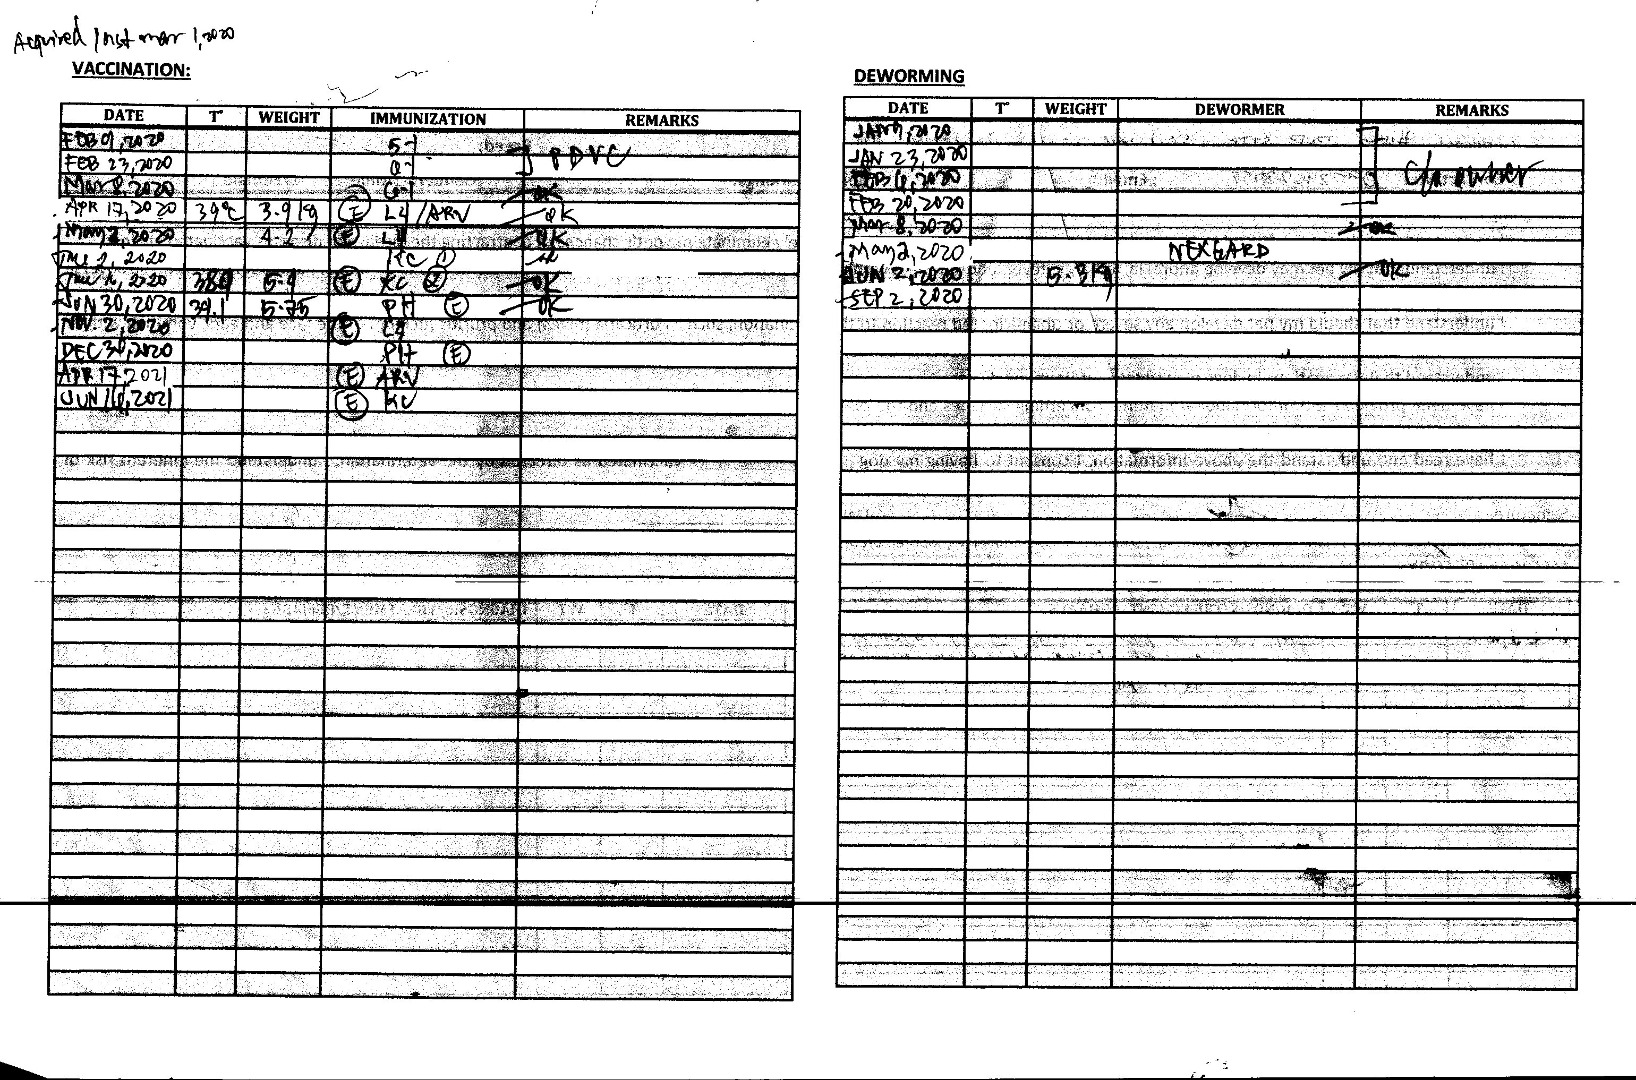 Acquired last mar 1, 2020
VACCINATION:
DATE T° WEIGHT IMMUNIZATION REMARKS
FEB 9, 2020 5-1
FEB 23, 2020 PDVC
Mar 8, 2020 6-1 OK
APR 17, 2020 39°C 3.9 kg E L4/ARV OK
May 2, 2020 4.2 E L4 OK
June 2, 2020 KC 1
June 16, 2020 38.9 5.9 E KC 2 OK
JUN 30, 2020 39.1 5.75 PH E OK
NOV. 2, 2020 E L4
DEC 30, 2020 PH E
APR 17, 2021 E ARV
JUN 16, 2021 E KC
DEWORMING
DATE T° WEIGHT DEWORMER REMARKS
JAN 9, 2020
JAN 23, 2020
FEB 6, 2020 c/o owner
FEB 20, 2020
Mar. 8, 2020
May 2, 2020 NEXGARD
JUN 2, 2020 5.3 kg OK
SEP 2, 2020